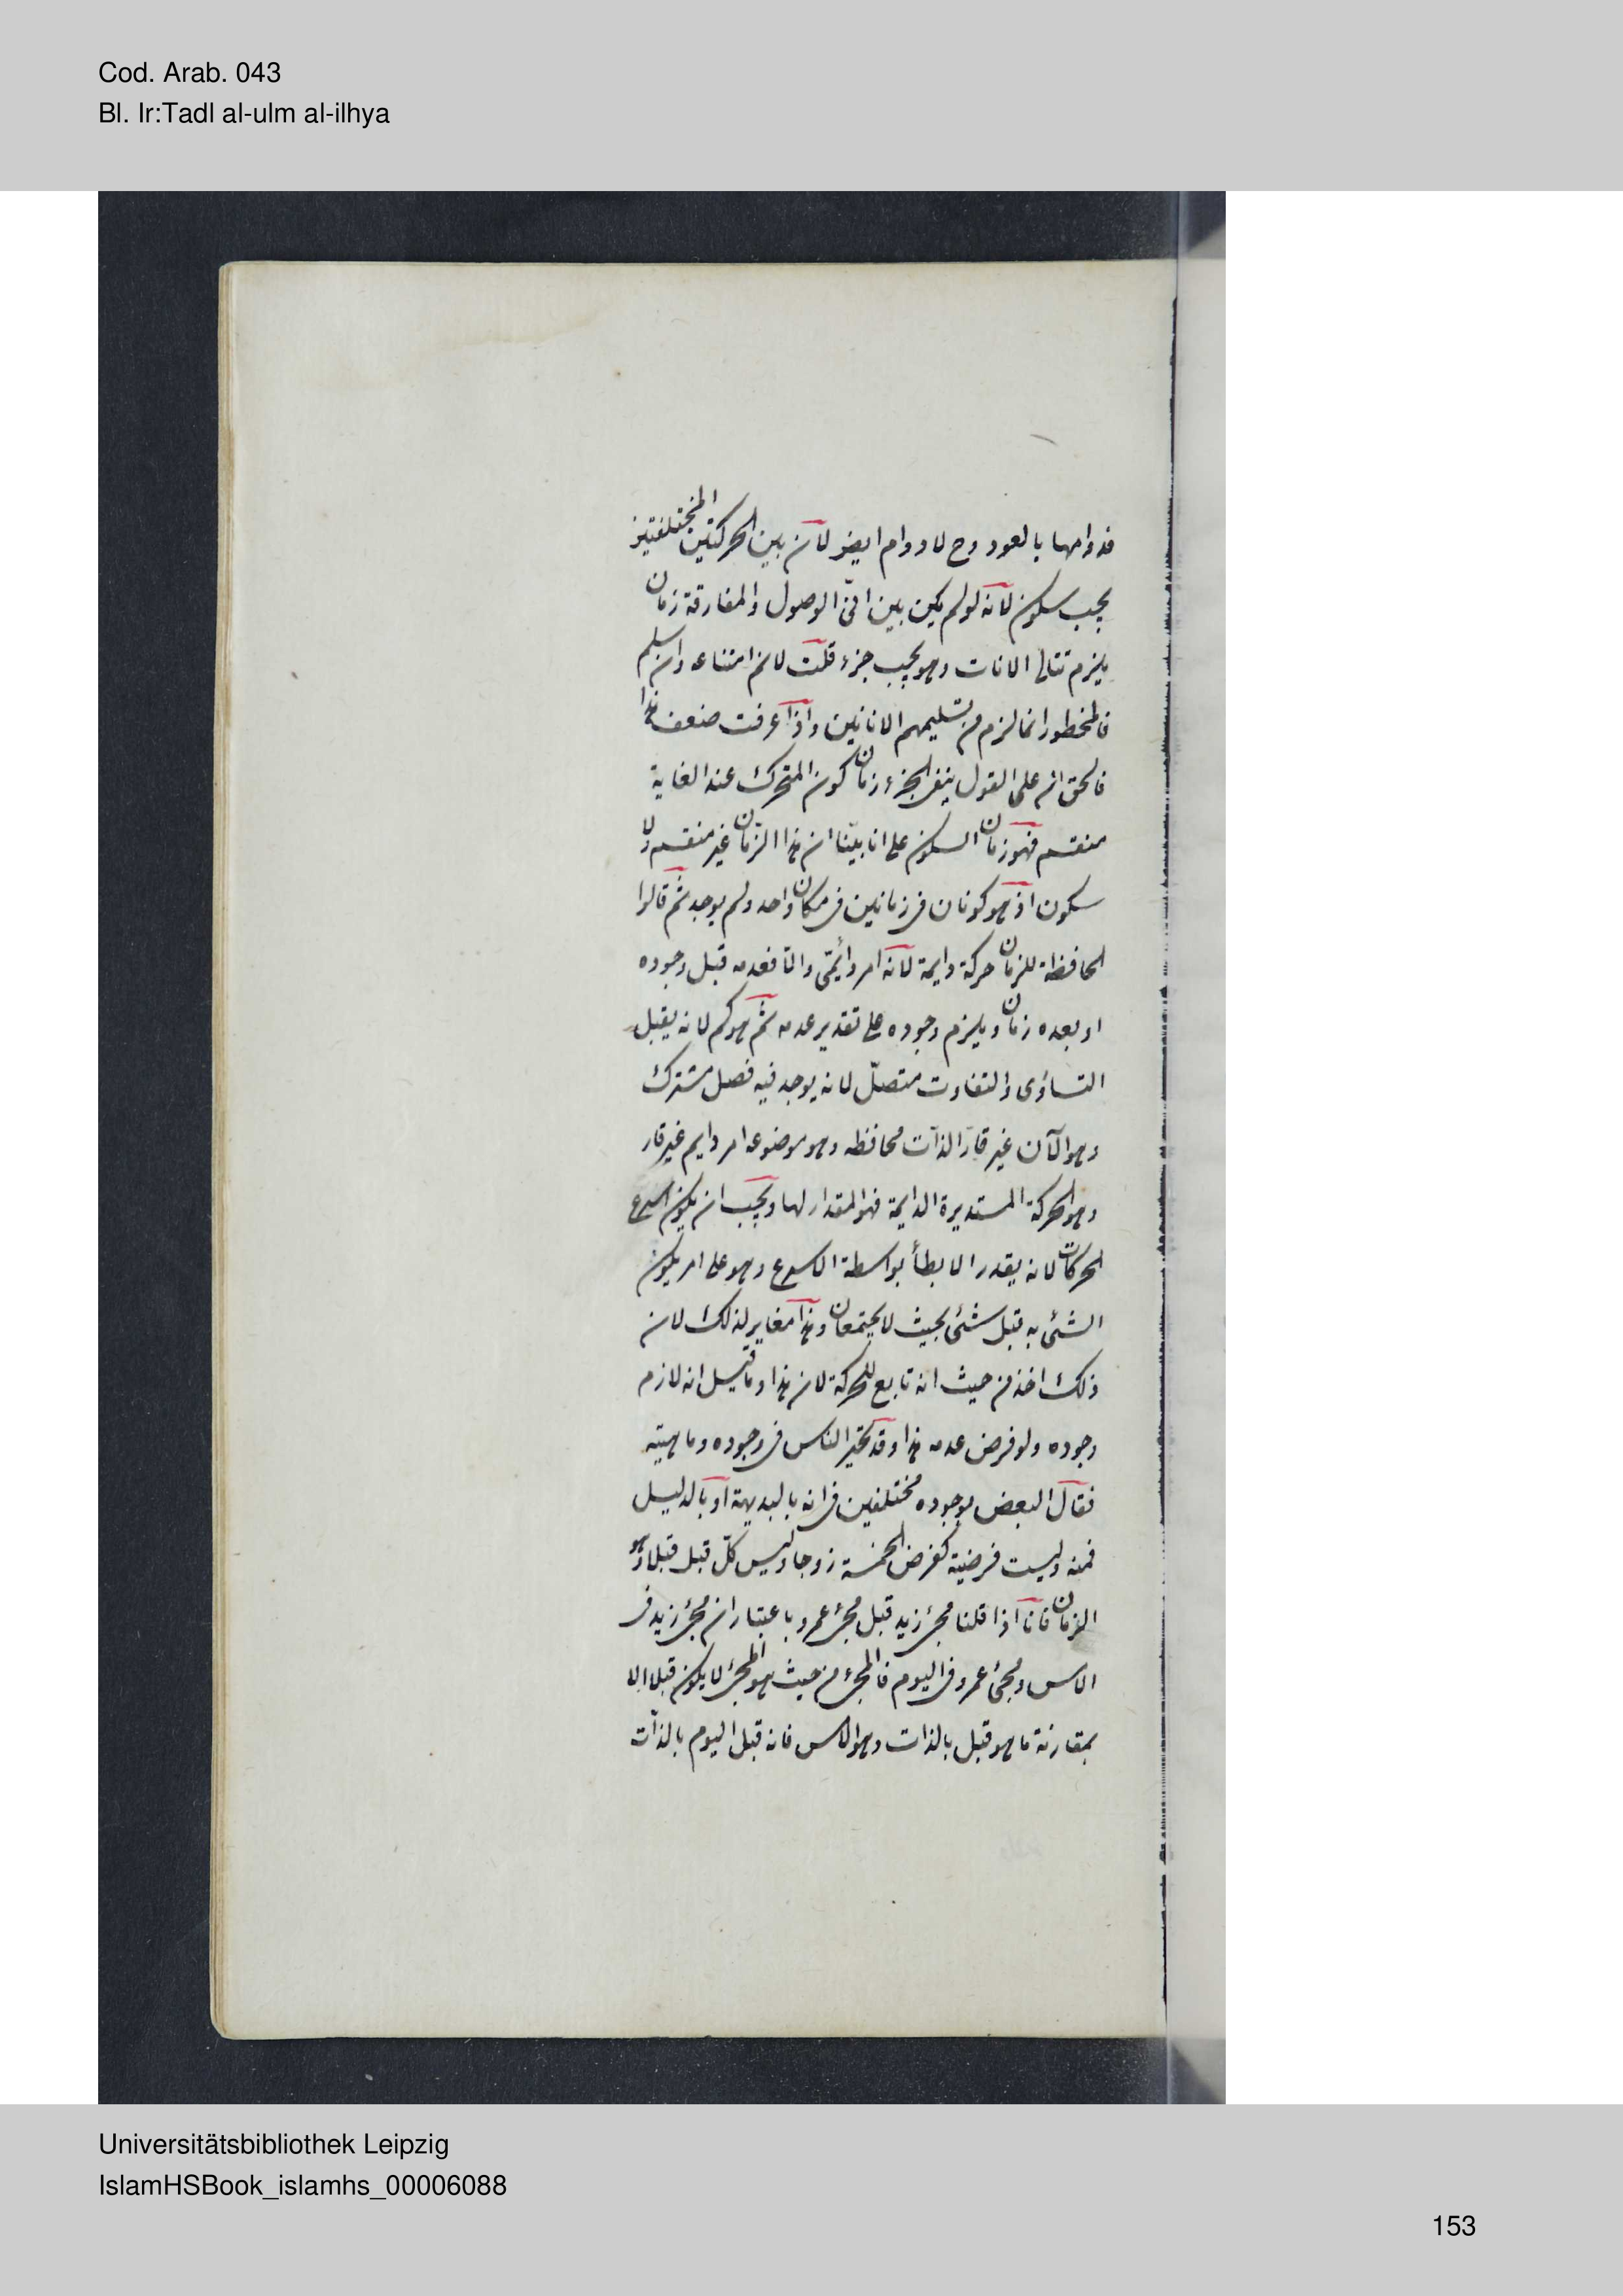 Cod. Arab. 043
Bl. Ir:Tadl al-ulm al-ilhya
فدوامها بالعود وح لا دوام ايضر لان بين الحركتين المختلفتين
يجب سكون لانه لو لم يكن بين انىّ الوصول والمفارقة زمان
يلزم تتالى الانات وهو يجب جزء قلت لانم امتناعه وان سلم
فالمخطور انما لزم من تسليمهم الانانين واذا عرفت ضعف هذا
فالحق انه على القول بنفى الجزء زمان كون المتحرك عند الغاية
منقسم فهو زمان السكون على انا بيّنا ان هذا الزمان غير منقسم ولا
سكون اذ هو كونان فى زمانين فى مكان واحد ولم يوجد ثم قالوا
الحافظة للزمان حركة دايمة لانه امر دائمى والا فعدمه قبل وجوده
او بعده زمان ويلزم وجوده على تقدير عدمه ثم هو كم لانه يقبل
التساوى والتفاوت متصلّ لانه يوجد فيه فصل مشترك
وهو الآن غير قارّ الذات محافظه وهو موضوعه امر دايم غير قار
وهو الحركة المستديرة الدايمة فهو المقدار لها ويجب ان يكون اسرع
الحركات لانه يقدر الابطأ بواسطة الاسرع وهو على امر يكون
الشئ به قبل شئ بحيث لا يجتمعان وهذا مغاير لذلك لان
ذلك اخذ من حيث انه تابع للحركة لان هذا وما قيل انه لازم
وجوده ولو فرض عدمه هذا وقد تحيّر الناس فى وجوده وماهيته
فقال البعض بوجوده مختلفين فى انه بالبديهة او بالدليل
فمنه وليست فرضية كفرض الخمسة زوجا وليس كلّ قبل قبلا وهو
الزمان فانا اذا قلنا مجئ زيد قبل مجئ عمرو باعتبار ان مجئ زيد فى
الامس ومجئ عمرو فى اليوم فالمجئ من حيث هو المجئ لا يكون قبلا الا
بمقارنة ما هو قبل بالذات وهو الامس فانه قبل اليوم بالذات
Universitätsbibliothek Leipzig
IslamHSBook_islamhs_00006088
153